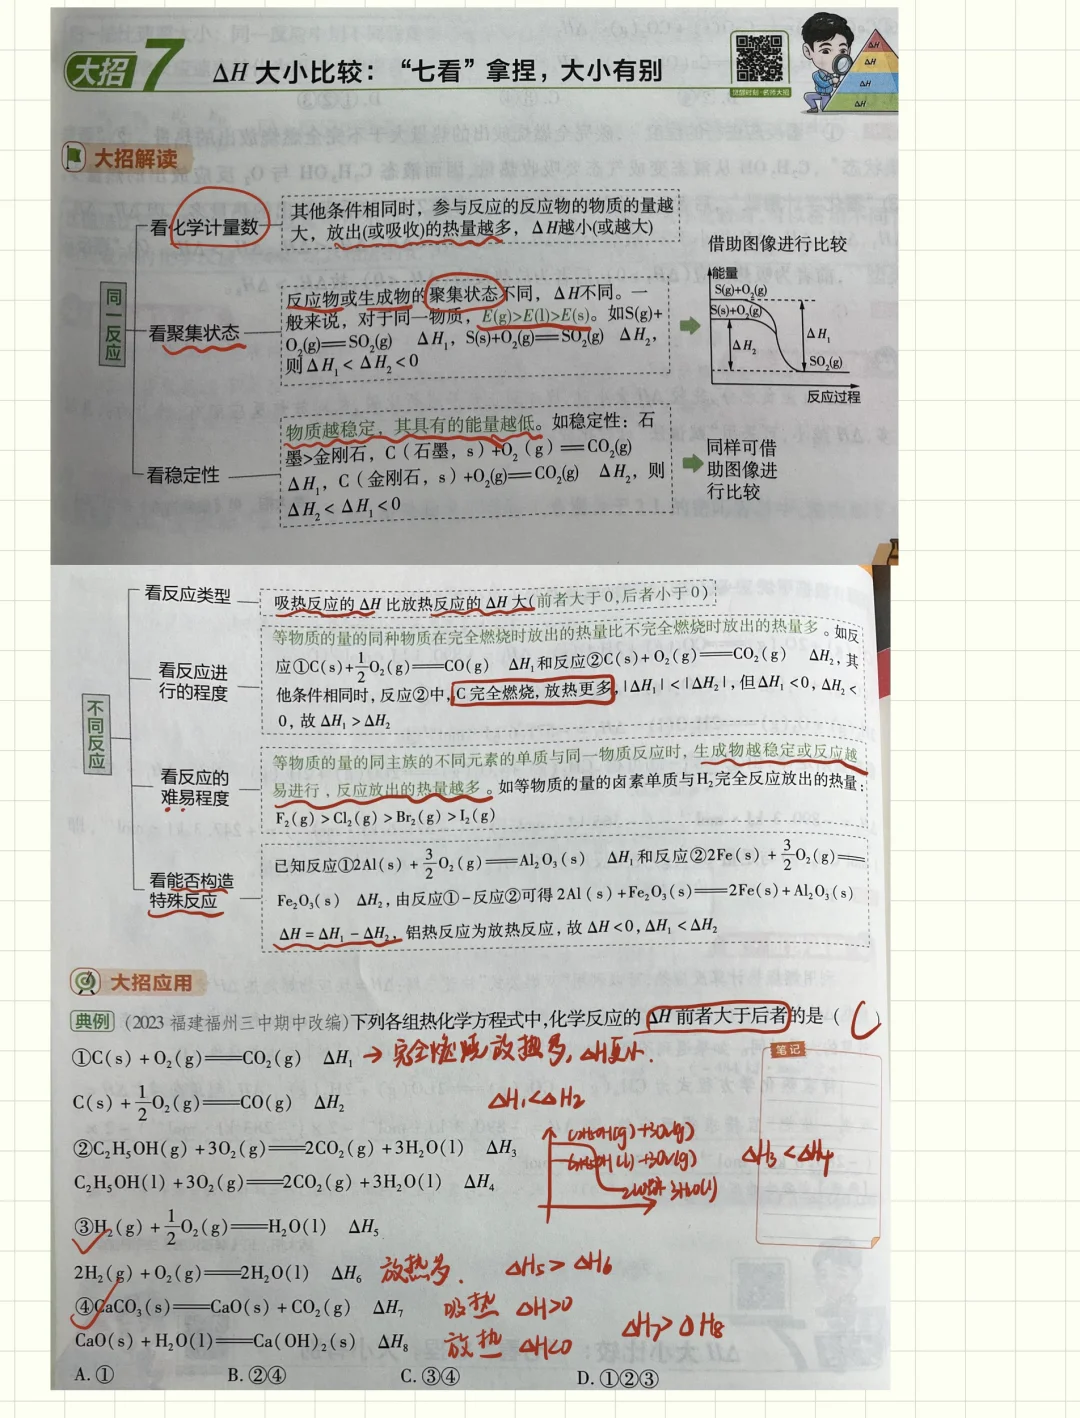 大招7 ΔH 大小比较：“七看”拿捏，大小有别
大招解读
同一反应
看化学计量数
其他条件相同时，参与反应的反应物的物质的量越
大，放出(或吸收)的热量越多，ΔH越小(或越大)
看聚集状态
反应物或生成物的聚集状态不同，ΔH不同。一
般来说，对于同一物质，E(g)>E(l)>E(s)。如S(g)+
O₂(g)══SO₂(g) ΔH₁，S(s)+O₂(g)══SO₂(g) ΔH₂，
则ΔH₁<ΔH₂<0
借助图像进行比较
能量
S(g)+O₂(g)
S(s)+O₂(g)
ΔH₁
ΔH₂
SO₂(g)
反应过程
看稳定性
物质越稳定，其具有的能量越低。如稳定性：石
墨>金刚石，C（石墨，s）+O₂（g）══CO₂(g)
ΔH₁，C（金刚石，s）+O₂(g)══CO₂(g) ΔH₂，则
ΔH₂<ΔH₁<0
同样可借
助图像进
行比较
不同反应
看反应类型
吸热反应的ΔH比放热反应的ΔH大(前者大于0,后者小于0)
看反应进
行的程度
等物质的量的同种物质在完全燃烧时放出的热量比不完全燃烧时放出的热量多。如反
应①C(s)+1/2O₂(g)══CO(g) ΔH₁和反应②C(s)+O₂(g)══CO₂(g) ΔH₂,其
他条件相同时,反应②中,C完全燃烧,放热更多,|ΔH₁|<|ΔH₂|,但ΔH₁<0,ΔH₂<
0,故ΔH₁>ΔH₂
看反应的
难易程度
等物质的量的同主族的不同元素的单质与同一物质反应时,生成物越稳定或反应越
易进行,反应放出的热量越多。如等物质的量的卤素单质与H₂完全反应放出的热量:
F₂(g)>Cl₂(g)>Br₂(g)>I₂(g)
看能否构造
特殊反应
已知反应①2Al(s)+3/2O₂(g)══Al₂O₃(s) ΔH₁和反应②2Fe(s)+3/2O₂(g)══
Fe₂O₃(s) ΔH₂,由反应①-反应②可得2Al(s)+Fe₂O₃(s)══2Fe(s)+Al₂O₃(s)
ΔH=ΔH₁-ΔH₂,铝热反应为放热反应,故ΔH<0,ΔH₁<ΔH₂
大招应用
典例 (2023福建福州三中期中改编)下列各组热化学方程式中,化学反应的ΔH前者大于后者的是( C )
①C(s)+O₂(g)══CO₂(g) ΔH₁ →完全燃烧放热多,ΔH更小.
笔记
C(s)+1/2O₂(g)══CO(g) ΔH₂ ΔH₁<ΔH₂
②C₂H₅OH(g)+3O₂(g)══2CO₂(g)+3H₂O(l) ΔH₃
C₂H₅OH(g)+3O₂(g)
C₂H₅OH(l)+3O₂(g)
2CO₂(g)+3H₂O(l)
ΔH₃<ΔH₄
C₂H₅OH(l)+3O₂(g)══2CO₂(g)+3H₂O(l) ΔH₄
③H₂(g)+1/2O₂(g)══H₂O(l) ΔH₅
2H₂(g)+O₂(g)══2H₂O(l) ΔH₆ 放热多. ΔH₅>ΔH₆
④CaCO₃(s)══CaO(s)+CO₂(g) ΔH₇ 吸热 ΔH>0
ΔH₇>ΔH₈
CaO(s)+H₂O(l)══Ca(OH)₂(s) ΔH₈ 放热 ΔH<0
A.① B.②④ C.③④ D.①②③